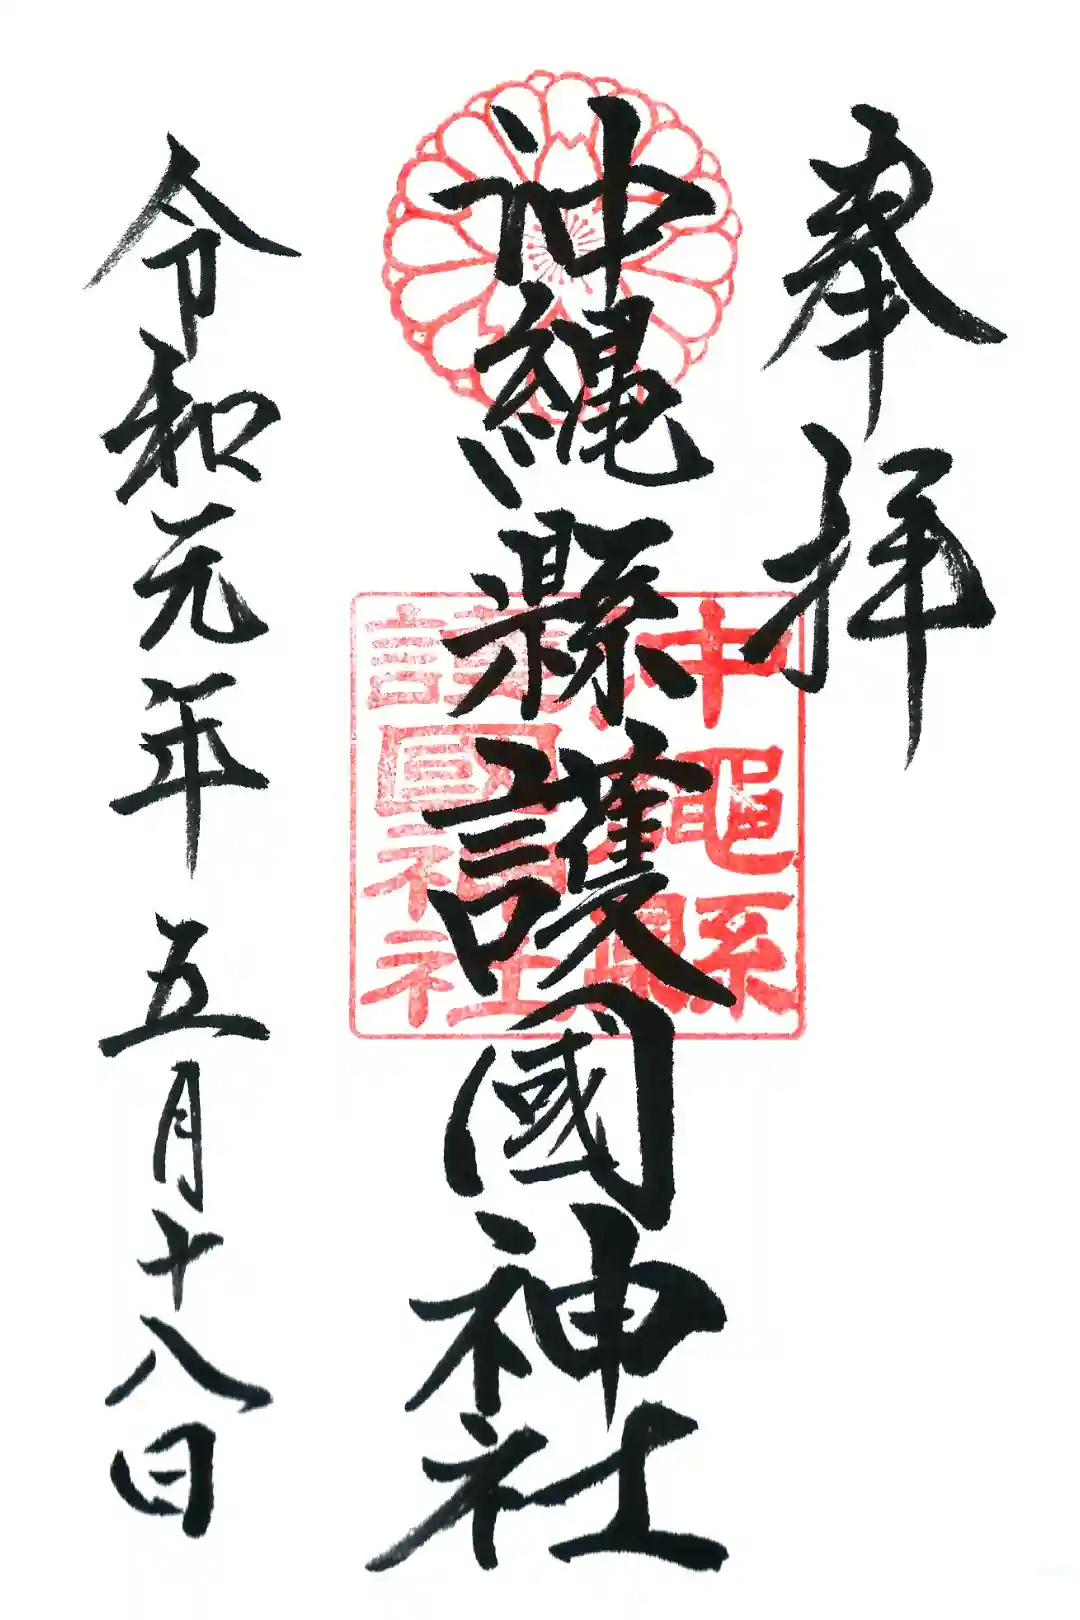 奉拝
沖縄縣護國神社
沖縄縣
護國神社
令和元年 五月十八日